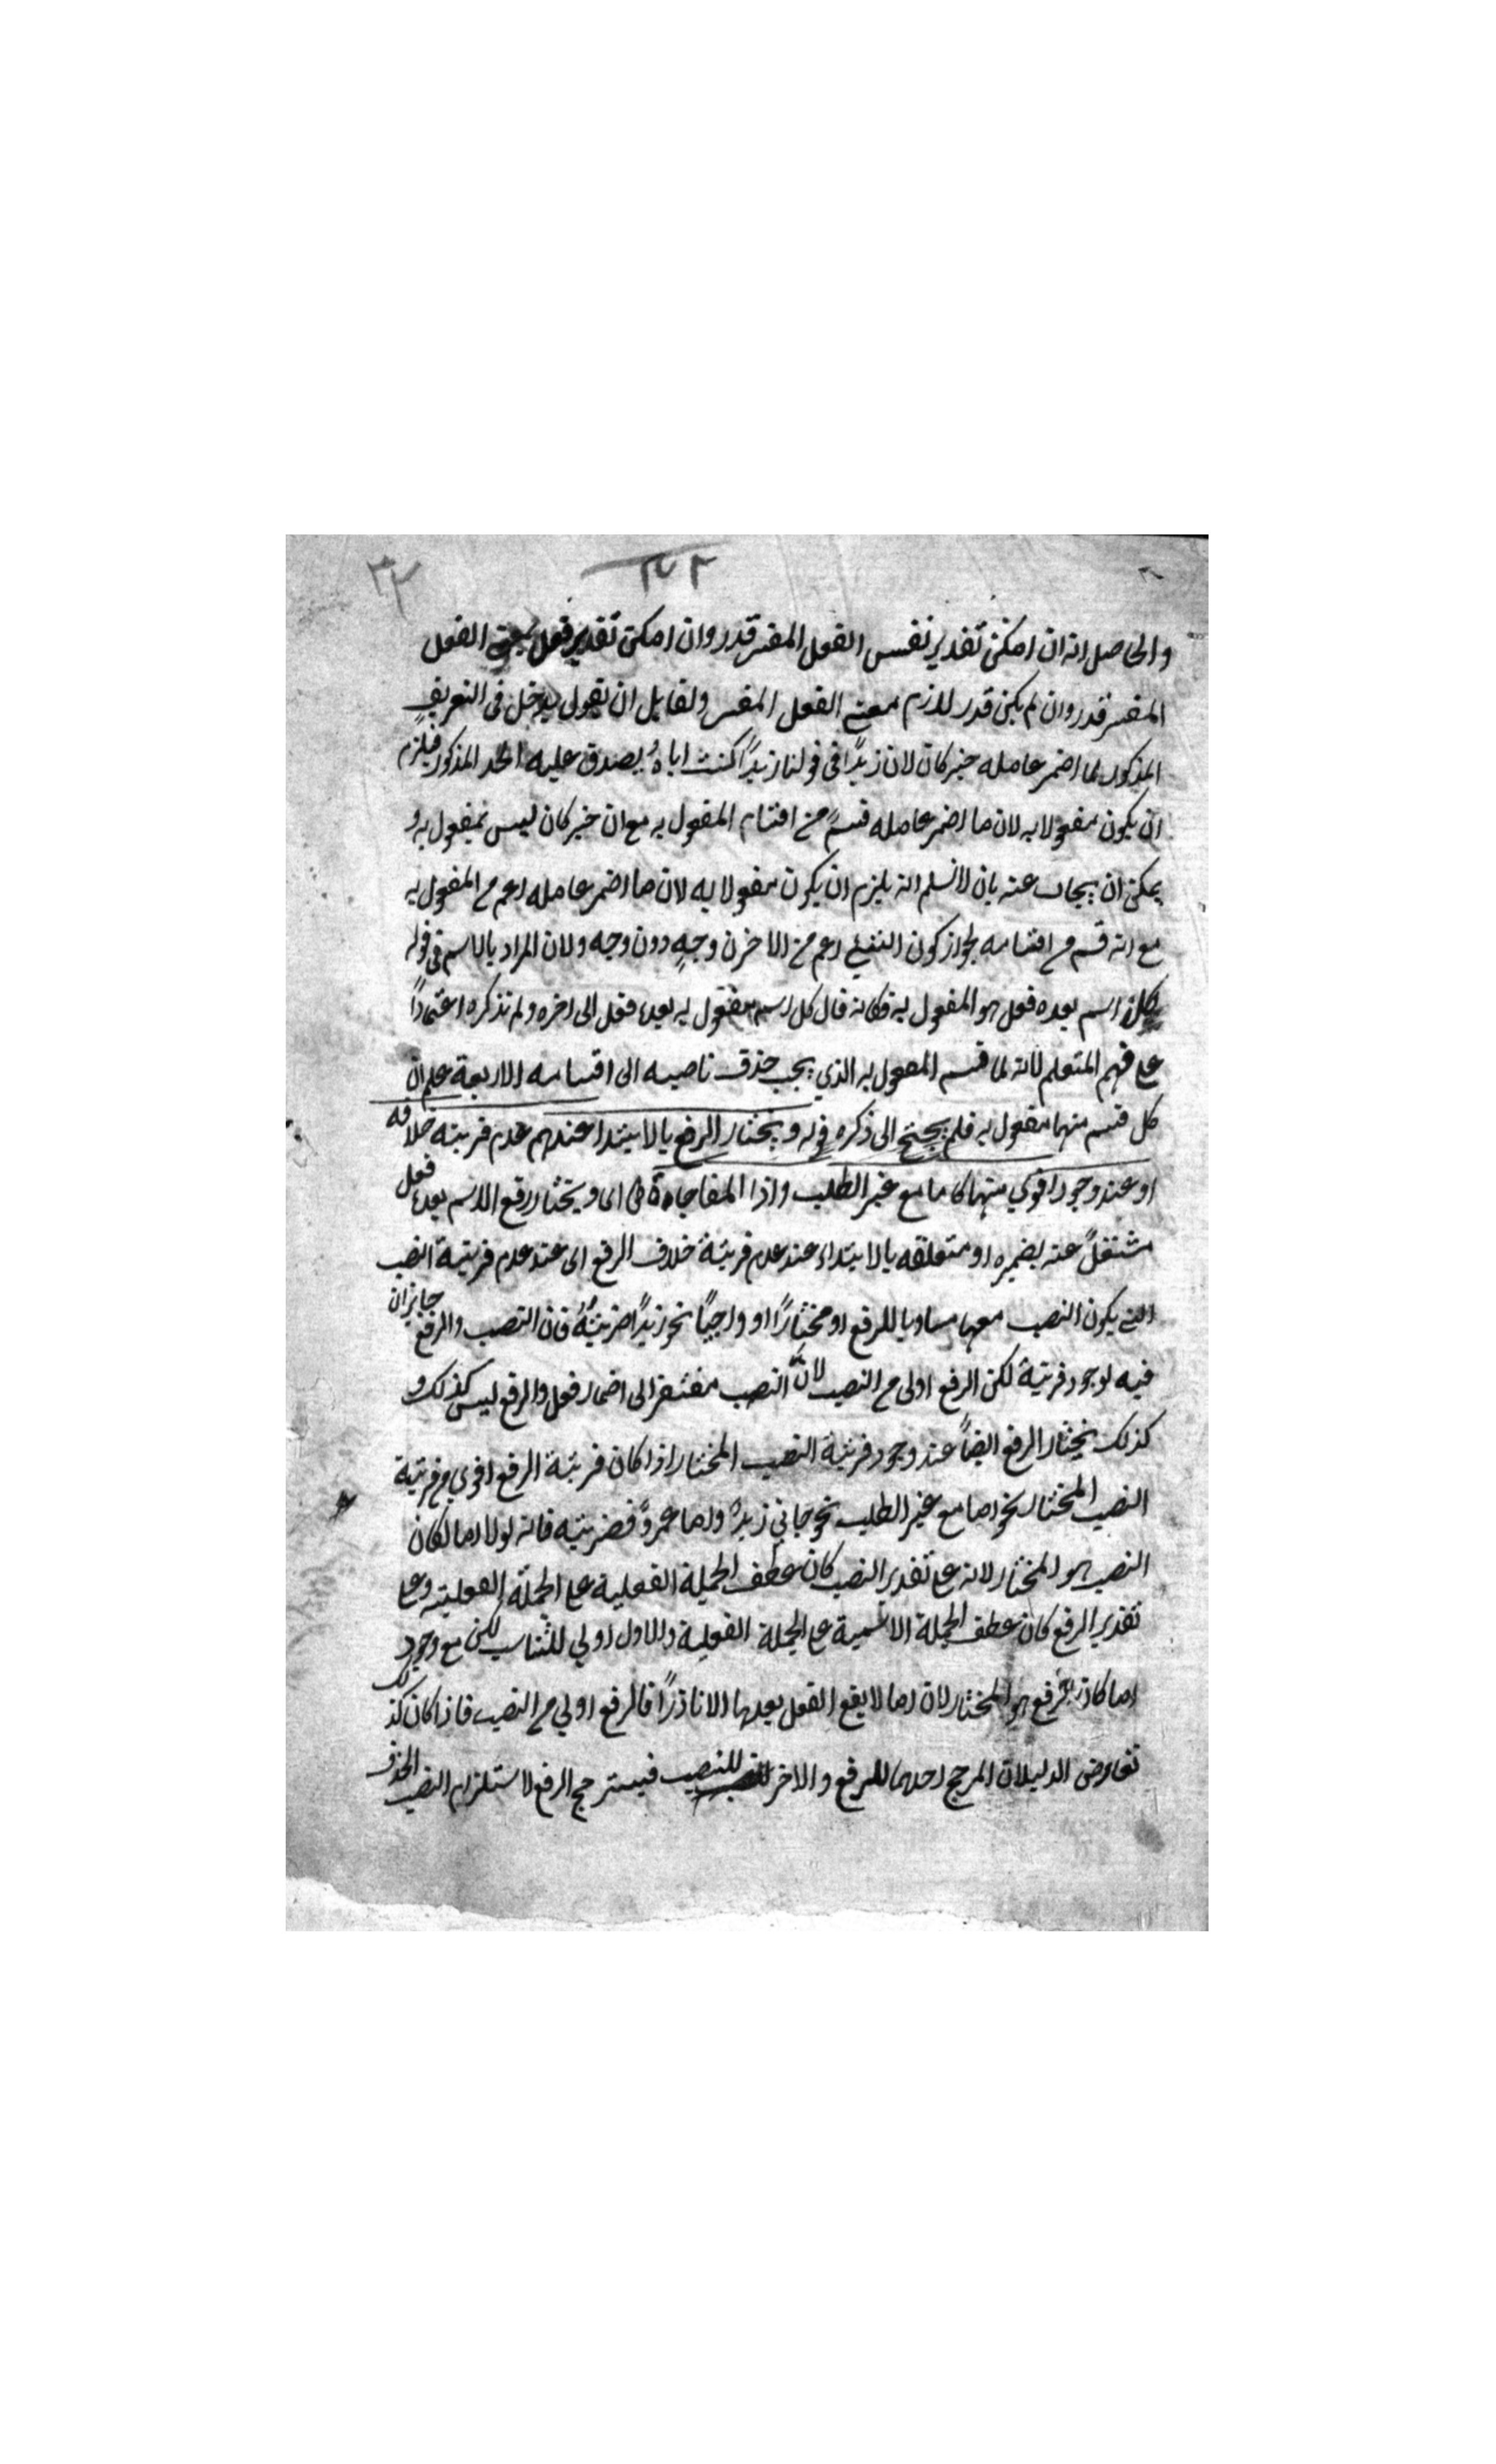 ٣٢
والحاصل انه ان امكن تقدير نفس الفعل المفسر قدر وان امكن تقدير فعل بمعنى الفعل
المفسر قدر وان لم يكن قدر لازم معنى الفعل المفسر ولقايل ان يقول يدخل في التعريف
المذكور لما اضمر عامله خبر كان لان زيدًا في قولنا زيدًا كنت اياه يصدق عليه الحد المذكور فيلزم
ان يكون مفعولا به لان ما اضمر عامله قسمٌ من اقسام المفعول به مع ان خبر كان ليس بمفعول به و
يمكن ان يجاب عنه بان لا نسلم انه يلزم ان يكون مفعولا به لان ما اضمر عامله اعم من المفعول به
مع انه قسم من اقسامه لجواز كون الشيء اعم من الاخر من وجهٍ دون وجه ولان المراد بالاسم في قوله
كل اسم بعده فعل هو المفعول به فكانه قال كل اسم مفعول به بعده فعل الى اخره ولم تذكره اعتمادًا
على فهم المتعلم لانه لما قسم المفعول به الذي يجب حذف ناصبه الى اقسامه الاربعة علم ان
كل قسم منها مفعول به فلم يحتج الى ذكره قوله ويختار الرفع بالابتدا عندهم عدم قرينة خلافه
او عند وجود اقوى منها كاما مع غير الطلب واذا المفاجاة اى ويختار رفع الاسم بعده فعل
مشتغلٌ عنه بضميره او متعلقه بالابتداء عند عدم قرينة خلاف الرفع اى عند عدم قرينة النصب
التي يكون النصب معها مساويا للرفع او مختارًا او واجبًا نحو زيدًا ضربتُهُ فان النصب والرفع جايزان
فيه لوجود قرينة لكن الرفع اولى من النصب لانَّ النصب مفتقر الى اضمار فعل والرفع ليس كذلك و
كذلك يختار الرفع ايضًا عند وجود قرينة النصب المختار اذا كان قرينة الرفع اقوى من قرينة
النصب المختار نحو اما مع غير الطلب نحو جاني زيدٌ واما عمروٌ فضربته فانه لولا اما لكان
النصب هو المختار لانه على تقدير النصب كان عطف الجملة الفعلية على الجملة الفعلية وعلى
تقدير الرفع كان عطف الجملة الاسمية على الجملة الفعلية والاول اولى للتناسب لكن مع وجود
اما كان الرفع هو المختار لان اما لا يقع الفعل بعدها الا نادرًا فالرفع اولى من النصب فاذا كان كذلك
تعارض الدليلان المرجح احدهما للرفع والاخر للنصب فيسترجح الرفع لاستلزام النصب الحذف